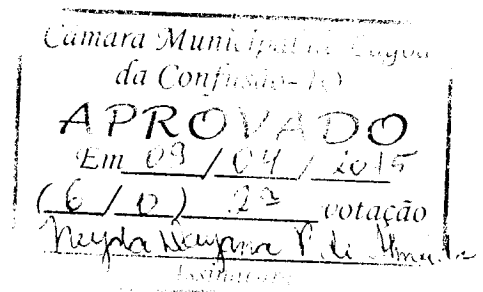 Câmara Municipal de Lagoa
da Confusão-TO
APROVADO
Em 09 / 04 / 2015
( 6 / 0 ) 2ª votação
Neyda Nayana P. de Almeida
Assinatura